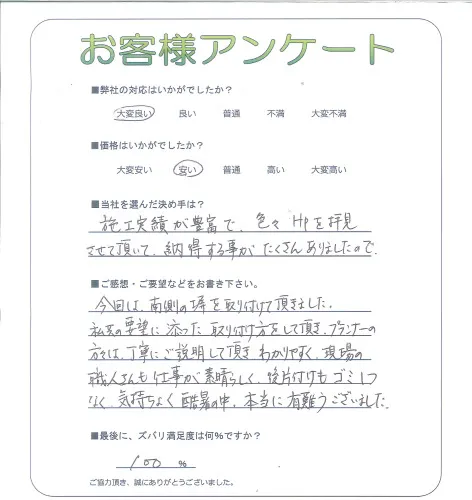 お客様アンケート
■弊社の対応はいかがでしたか？
大変良い 良い 普通 不満 大変不満
■価格はいかがでしたか？
大変安い 安い 普通 高い 大変高い
■当社を選んだ決め手は？
施工実績が豊富で、色々HPを拝見
させて頂いて、納得する事がたくさんありましたので、
■ご感想・ご要望などをお書き下さい。
今回は、南側の塀を取り付けて頂きました。
私共の要望に添った取り付け方をして頂き、プランナーの
方は、丁寧にご説明して頂きわかりやすく、現場の
職人さんも仕事が素晴らしく、後片付けもゴミ1つ
なく、気持ちよく酷暑の中、本当に有難うございました。
■最後に、ズバリ満足度は何％ですか？
100 %
ご協力頂き、誠にありがとうございました。